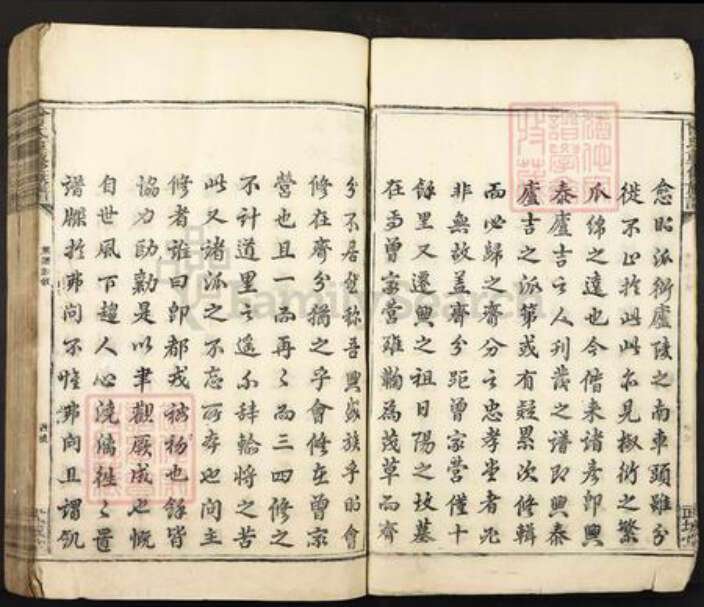 愈昭派衍廬陵之南車頭雖分
從不止於此此亦見椒衍之繁
瓜綿之遠也今偕来諸彥即興
泰廬吉之人刊茂之譜即興泰
廬吉之派第或有疑累次修輯
而必歸之齋分之忠孝堂者非
非無故蓋齋分距曾家營僅十
餘里又遷興之祖日陽之坟墓
在焉曾家營雖鞠為茂草而齋
分不居然称吾興巨族乎昭會
修在齋分猶之乎會修在曾家
營也且一而再之而三四修之
不計道里之遙不辞輪將之苦
此又諸派之不忘所在也问主
修者誰曰即都戎穉初也餘皆
協力劻勷是以聿觀厥成也慨
自世風下趨人心澆漓徃之置
譜牒於弗问不惟弗问且謂飢
FamilySearch